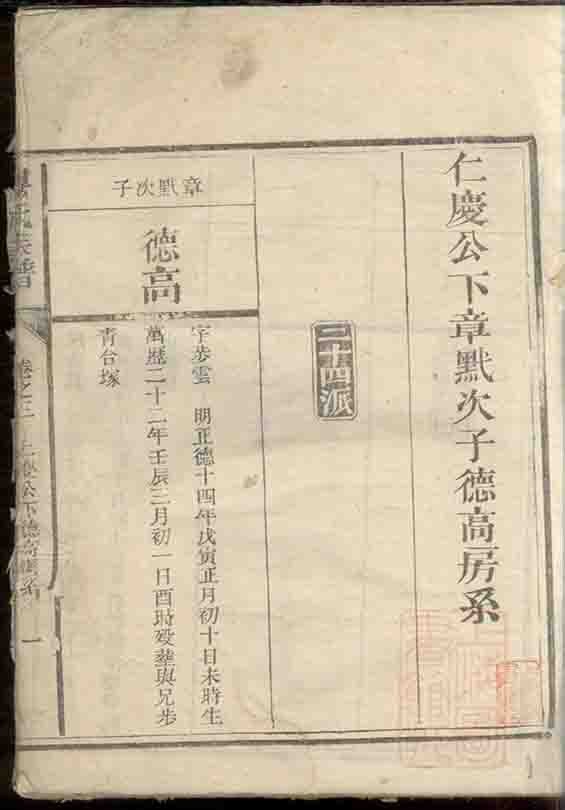 仁慶公下章默次子德高房系
三十四派
章默次子
德高
字恭雲　明正德十四年戊寅正月初十日未時生
萬歷二十二年壬辰三月初一日酉時歿葬與兄步
青台塚
氏族譜
卷之三
公下德高房系
一